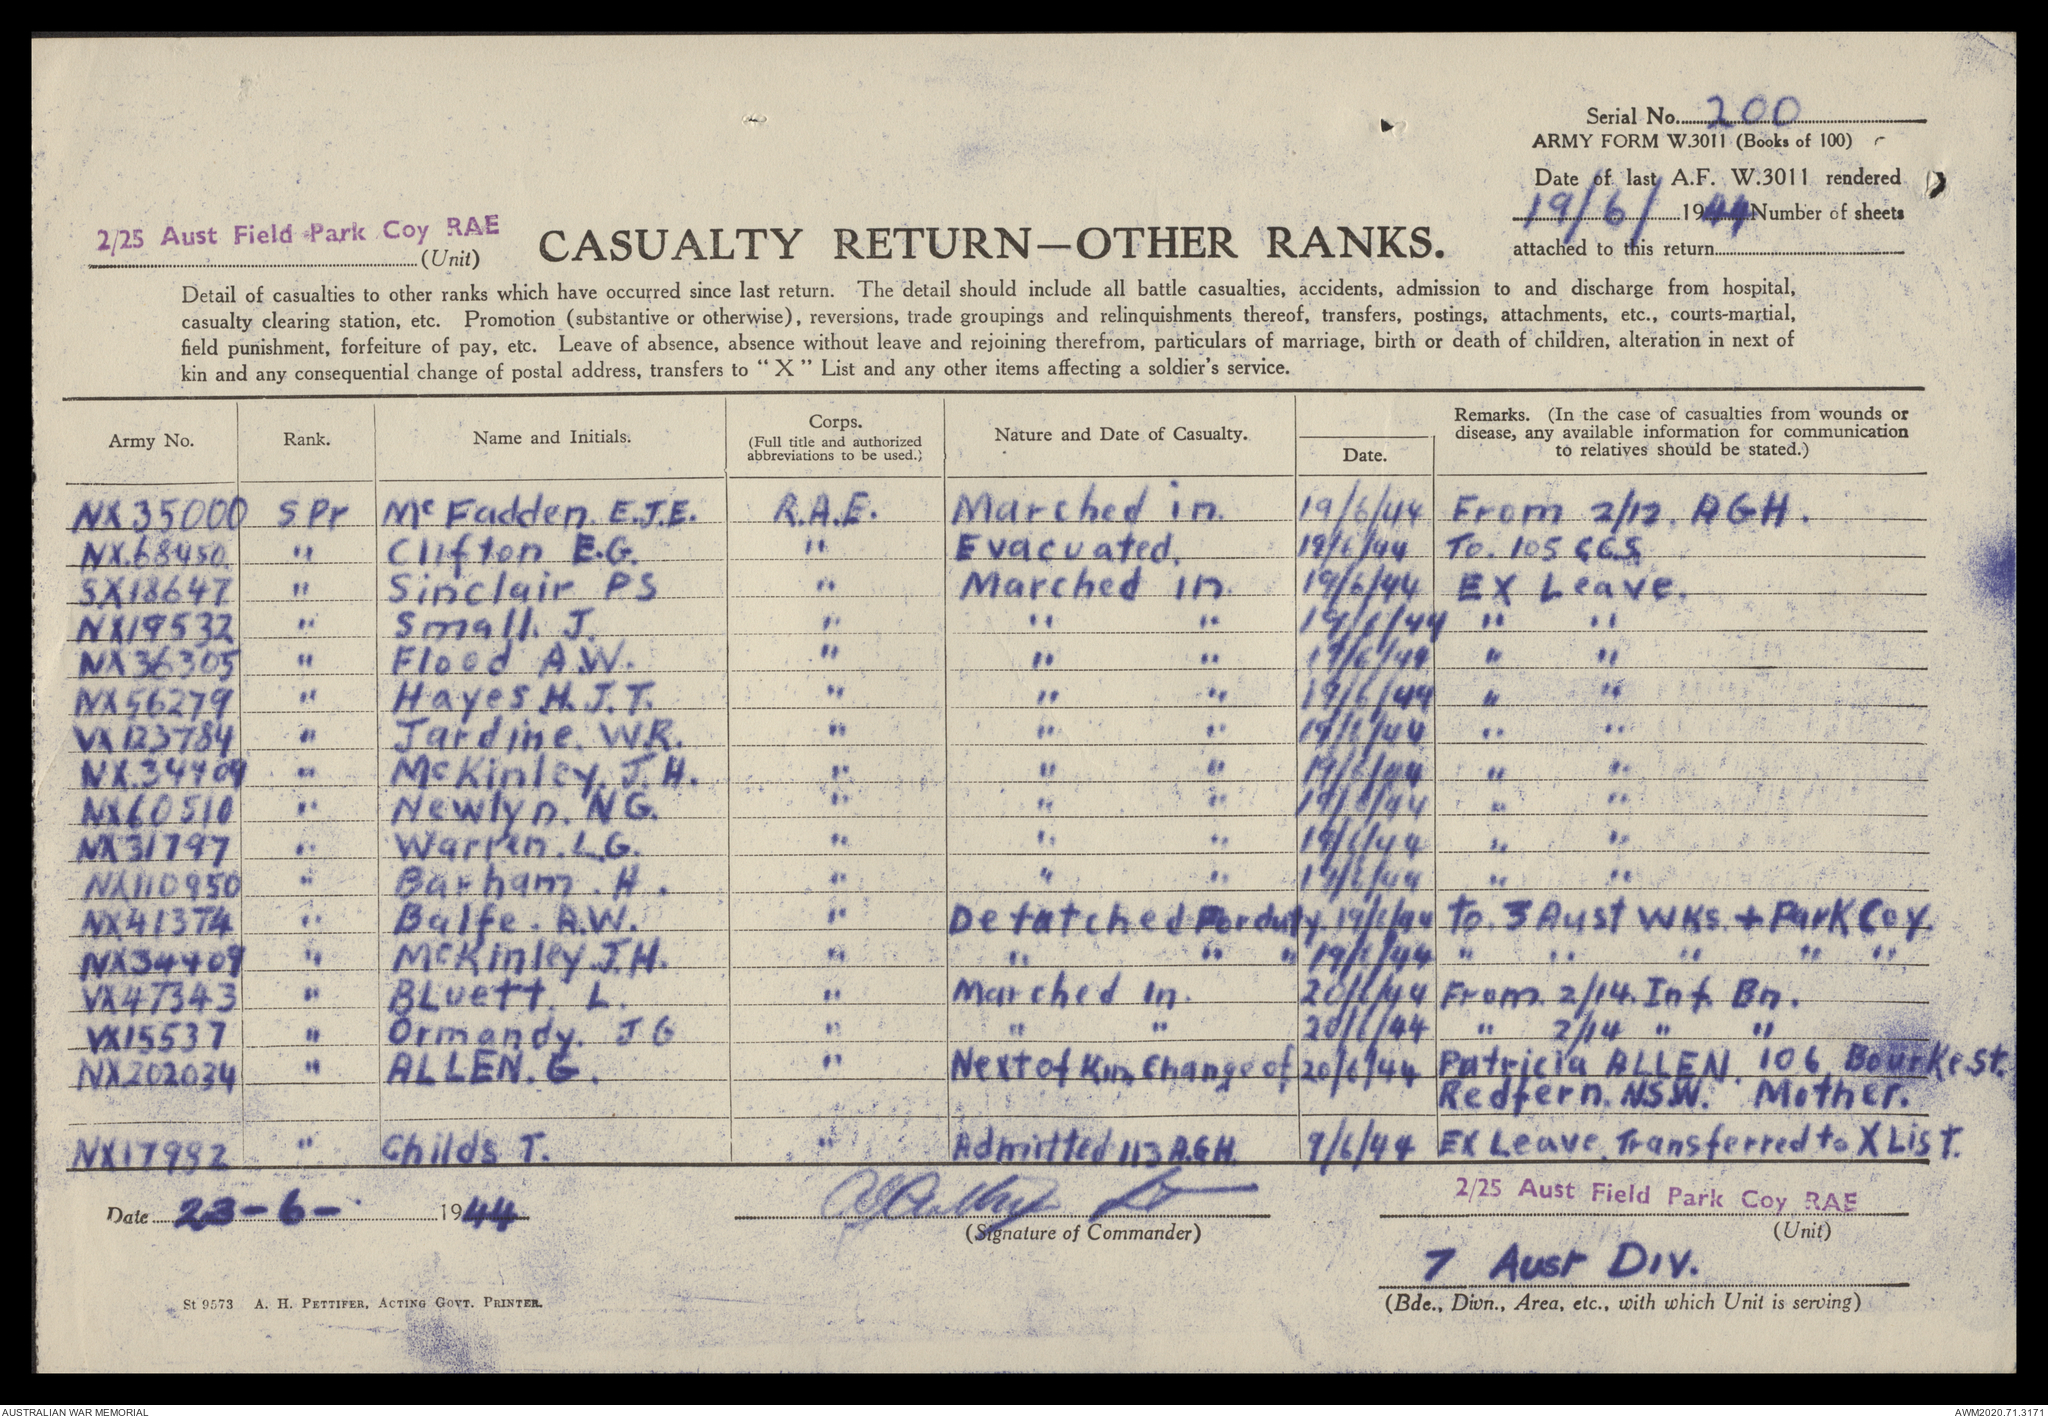 Serial No. 200
ARMY FORM W.3011 (Books of 100)
Date of last A.F. W.3011 rendered
19/6/ 1944 Number of sheets
attached to this return
2/25 Aust Field Park Coy RAE
(Unit)
CASUALTY RETURN—OTHER RANKS.
Detail of casualties to other ranks which have occurred since last return. The detail should include all battle casualties, accidents, admission to and discharge from hospital,
casualty clearing station, etc. Promotion (substantive or otherwise), reversions, trade groupings and relinquishments thereof, transfers, postings, attachments, etc., courts-martial,
field punishment, forfeiture of pay, etc. Leave of absence, absence without leave and rejoining therefrom, particulars of marriage, birth or death of children, alteration in next of
kin and any consequential change of postal address, transfers to "X" List and any other items affecting a soldier's service.
Army No. Rank. Name and Initials. Corps. (Full title and authorized abbreviations to be used.) Nature and Date of Casualty. Date. Remarks. (In the case of casualties from wounds or disease, any available information for communication to relatives should be stated.)
NX35000 SPr McFadden. E.J.E. R.A.E. Marched in. 19/6/44 From 2/12. AGH.
NX.68450. " Clifton E.G. " Evacuated. 19/6/44 To. 105 CCS
SX18647 " Sinclair PS " Marched in 19/6/44 EX Leave.
NX19532 " Small. J. " " " 19/6/44 " "
NX36305 " Flood A.W. " " " 19/6/44 " "
NX56279 " Hayes H.J.T. " " " 19/6/44 " "
VX123784 " Jardine. W.R. " " " 19/6/44 " "
NX.34409 " McKinley. J.H. " " " 19/6/44 " "
NX60510 " Newlyn. NG. " " " 19/6/44 " "
NX31797 " Warren. L.G. " " " 19/6/44 " "
NX110950 " Barham. H. " " " 19/6/44 " "
NX41374 " Balfe. A.W. " Detatched For duty. 19/6/44 To. 3 Aust WKs. + Park Coy.
NX34409 " McKinley J.H. " " " " 19/6/44 " " " " "
VX47343 " BLuett. L. " Marched In. 20/6/44 From. 2/14. Inf. Bn.
VX15537 " Ormandy. J G " " " 20/6/44 " 2/14 " "
NX202034 " ALLEN. G. " Next of Kin, Change of 20/6/44 Patricia ALLEN. 106 Bourke St.
Redfern. NSW. Mother.
NX17992 " Childs T. " Admitted 113 A.G.H. 9/6/44 EX Leave, Transferred to X LisT.
Date 23-6- 1944
(Signature of Commander)
2/25 Aust Field Park Coy RAE
(Unit)
7 Aust Div.
(Bde., Divn., Area, etc., with which Unit is serving)
St 9573 A. H. PETTIFER, ACTING GOVT. PRINTER.
AUSTRALIAN WAR MEMORIAL
AWM2020.71.3171